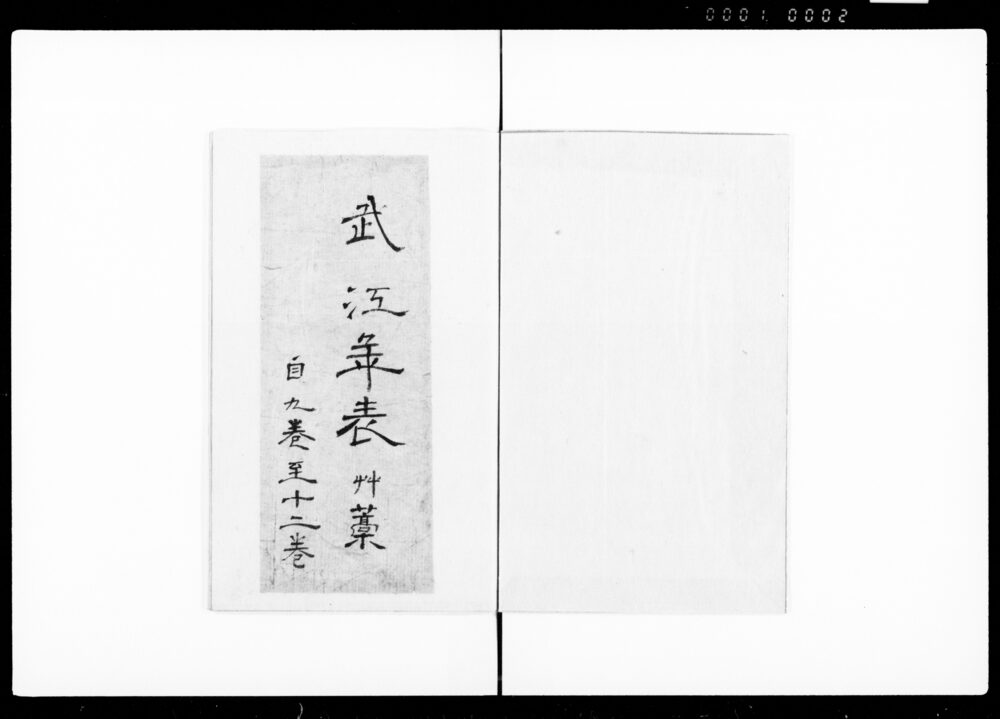 0001. 0002
武江年表 艸藳
自九卷至十二卷